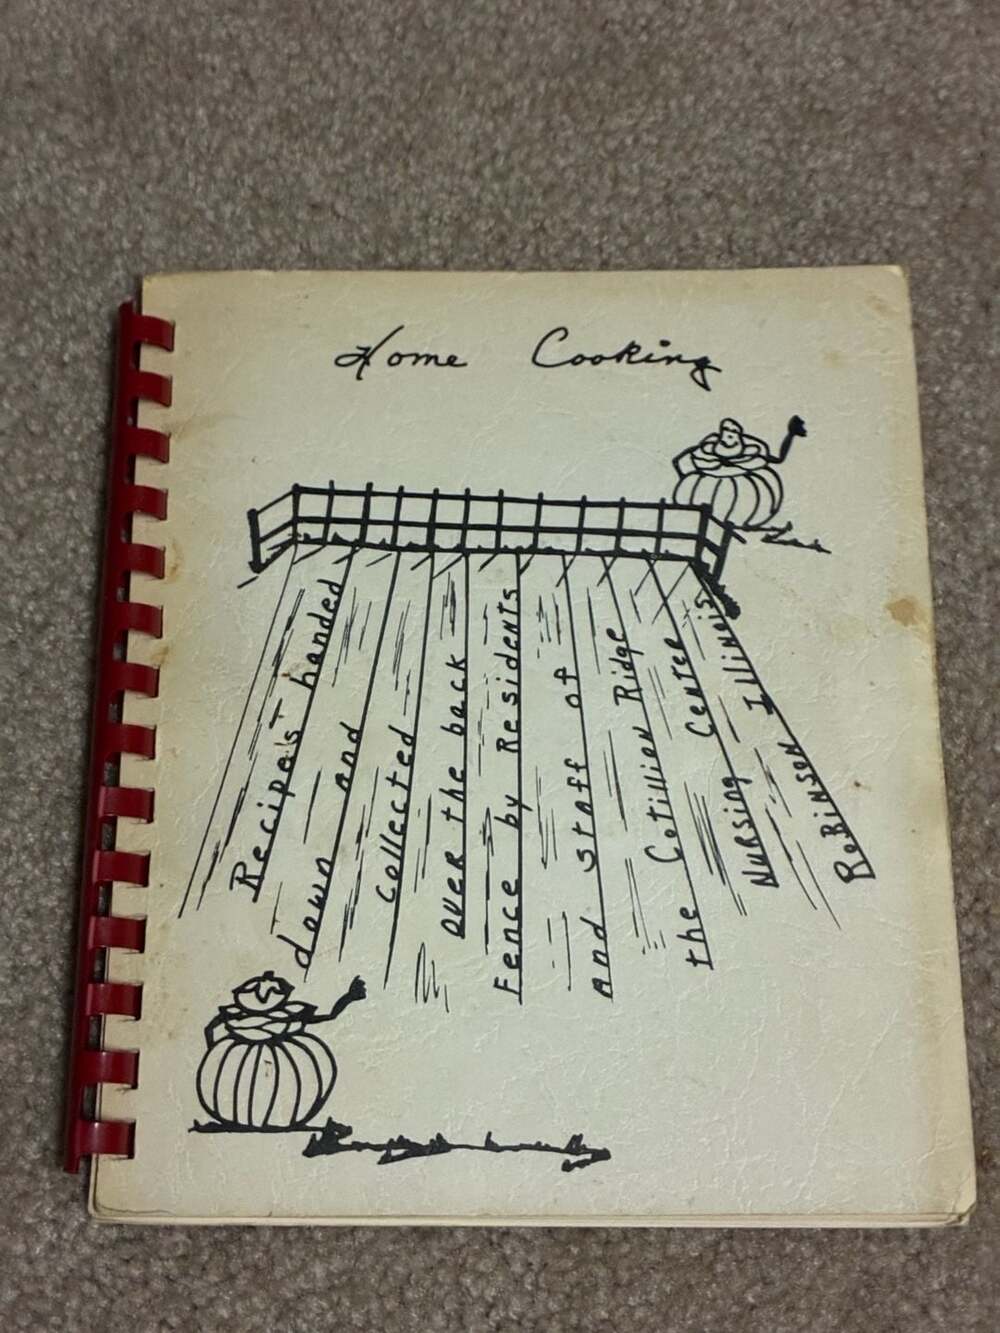 Home Cooking
Recipe's handed
down and
collected
over the back
Fence by Residents
and staff of
the Cotillion Ridge
Nursing Center
Robinson Illinois